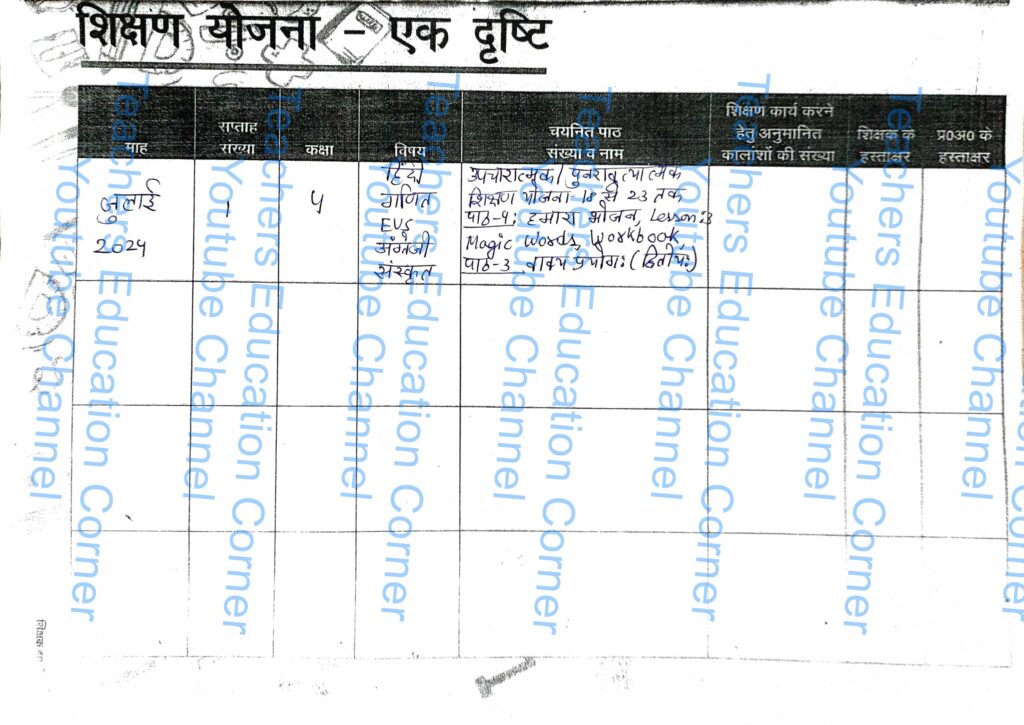 शिक्षण योजना - एक दृष्टि
माह
सप्ताह
संख्या
कक्षा
विषय
चयनित पाठ
संख्या व नाम
शिक्षण कार्य करने
हेतु अनुमानित
कालांशों की संख्या
शिक्षक के
हस्ताक्षर
प्र०अ० के
हस्ताक्षर
जुलाई
2024
1
4
हिंदी
गणित
EVS
अंग्रेजी
संस्कृत
उपचारात्मक/ पुनरावृत्यात्मक
शिक्षण योजना 18 से 23 तक
पाठ-4: हमारा भोजन, Lesson:3
Magic Words, Workbook,
पाठ-3 वाक्य प्रयोगः (द्वितीयः)
Teachers Education Corner
Youtube Channel
Teachers Education Corner
Youtube Channel
Teachers Education Corner
Youtube Channel
Teachers Education Corner
Youtube Channel
Teachers Education Corner
Youtube Channel
Teachers Education Corner
Youtube Channel